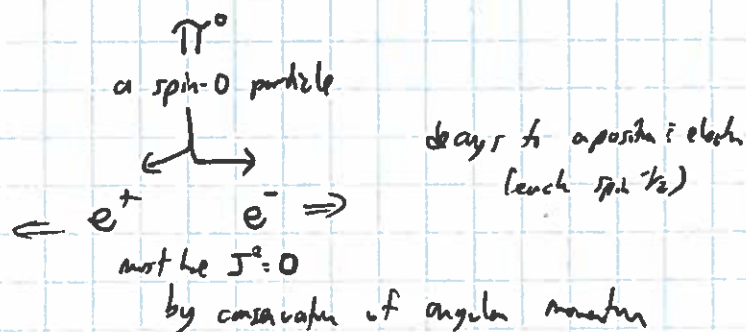 π⁰
a spin-0 particle
decays to a positron & electron
(each spin ½)
⇐ e⁺ e⁻ ⇒
must have J²=0
by conservation of angular momentum